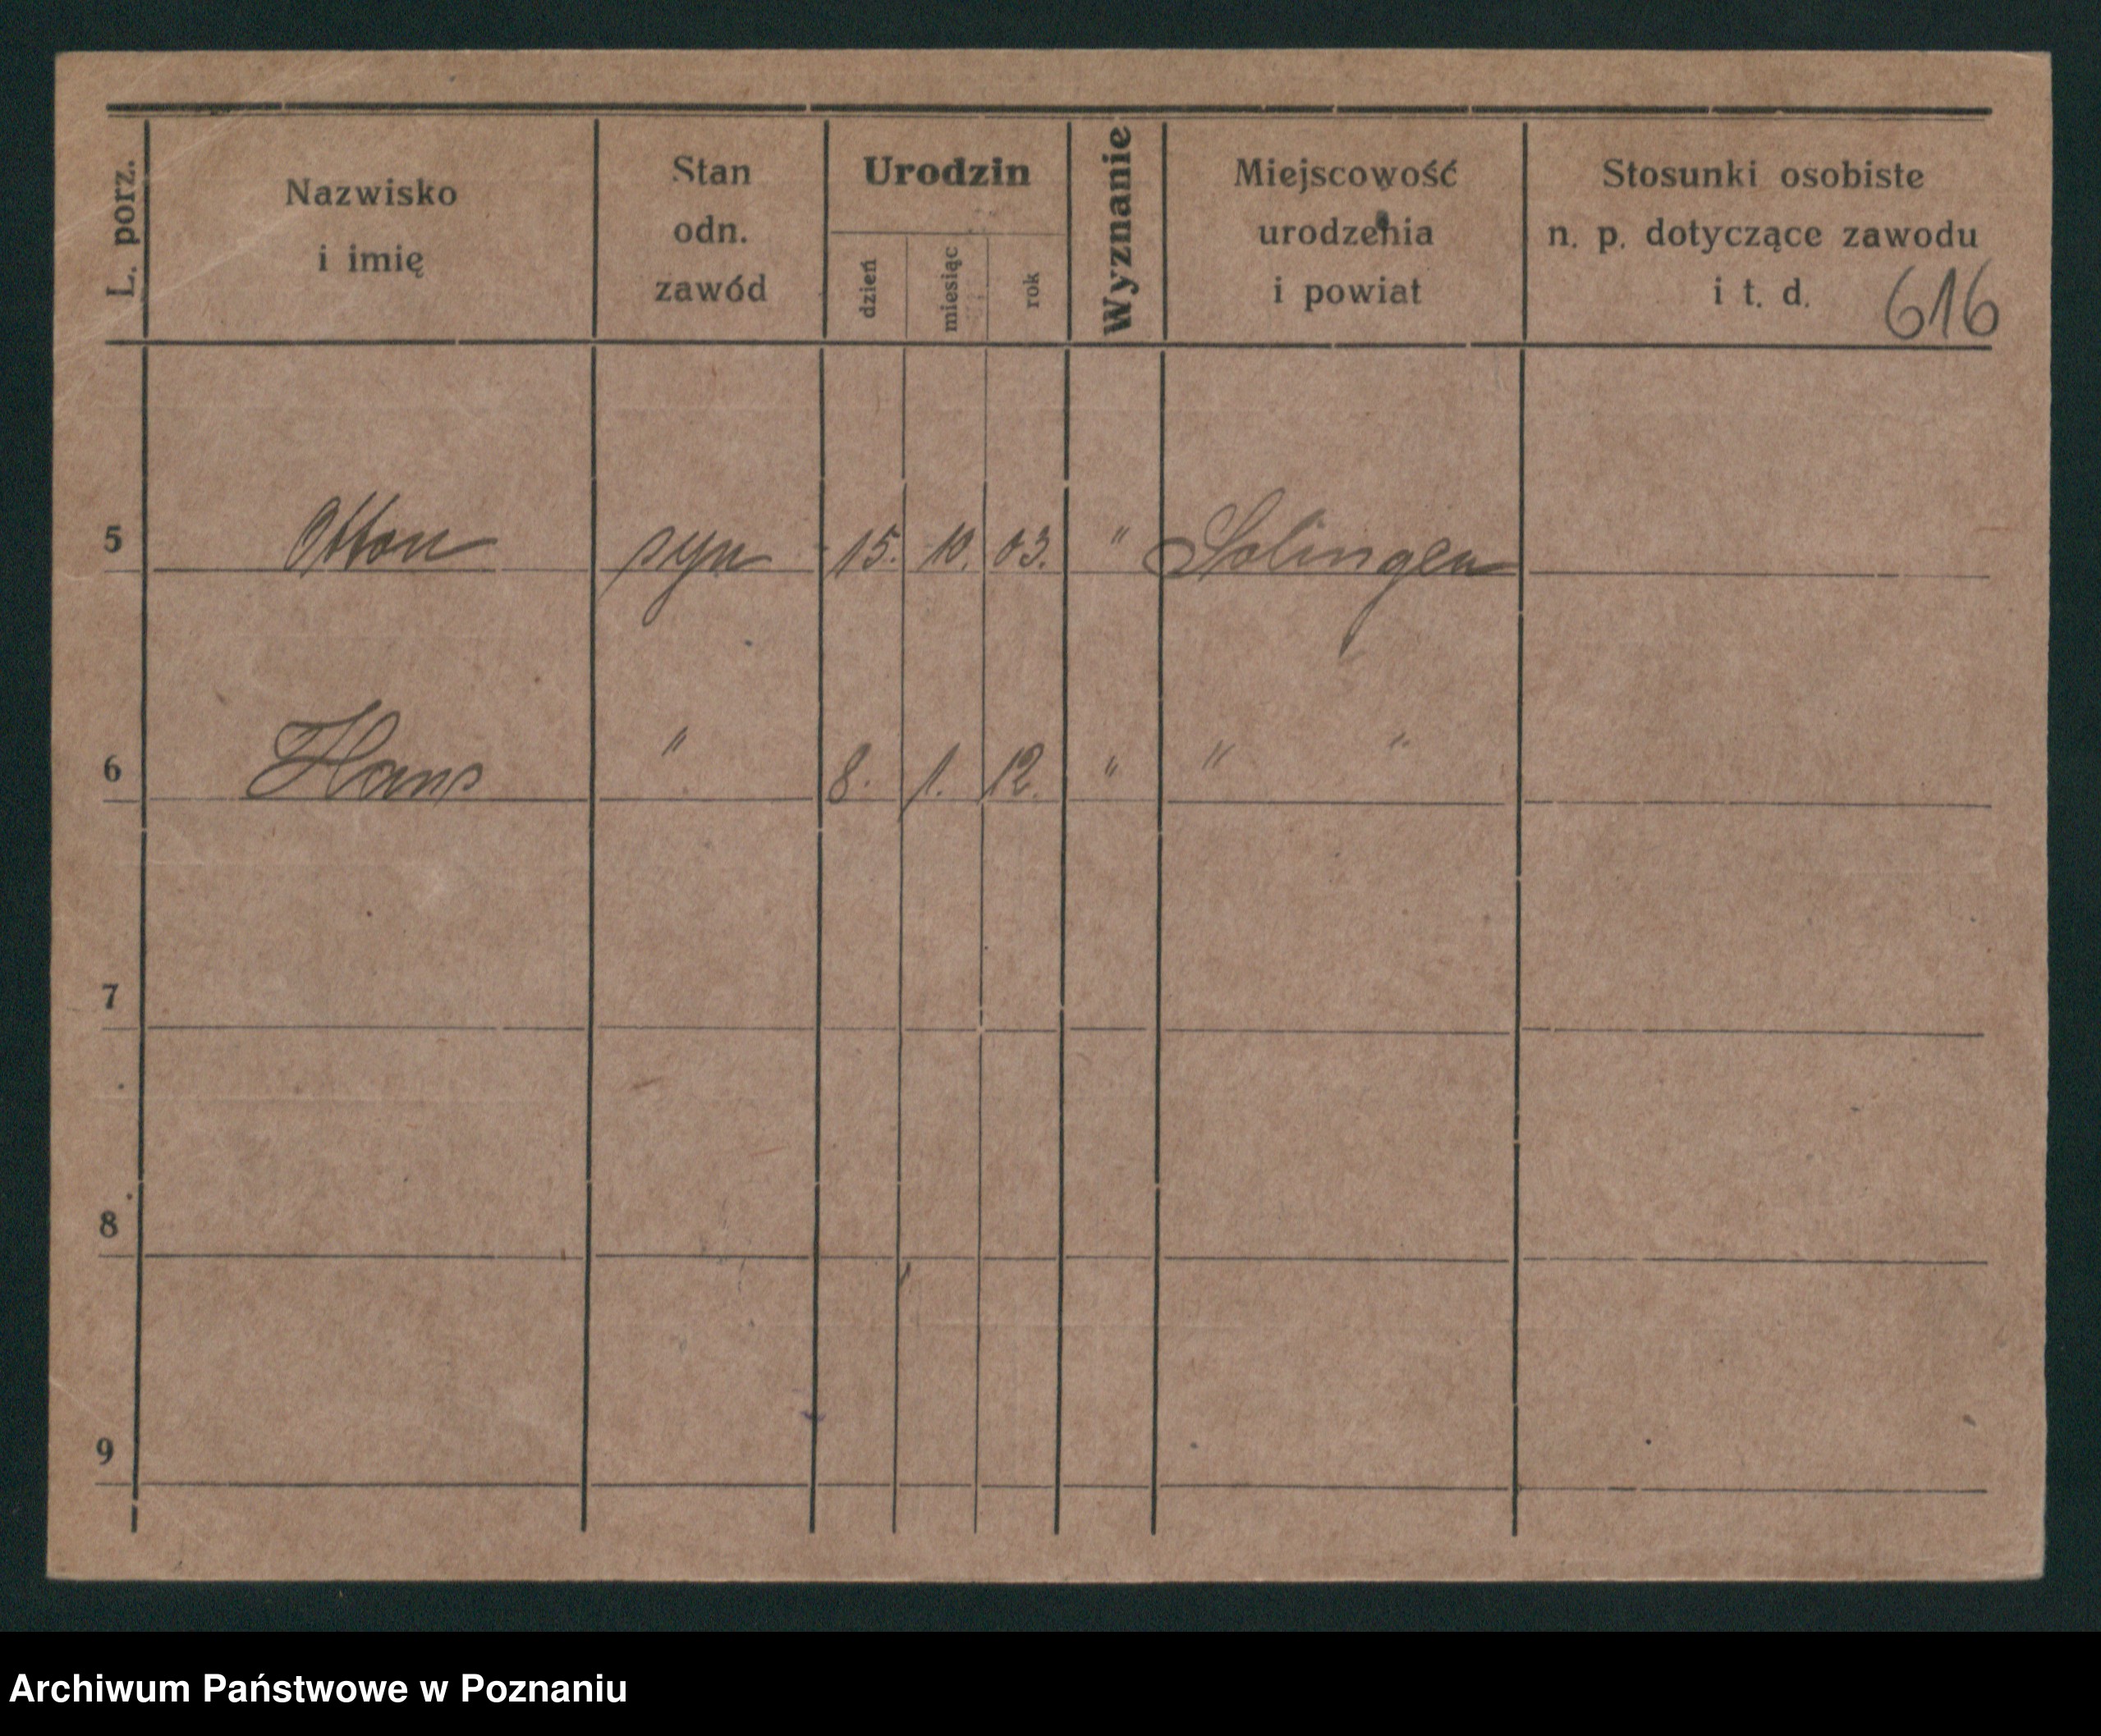 L. porz.
Nazwisko
i imię
Stan
odn.
zawód
Urodzin
dzień
miesiąc
rok
Wyznanie
Miejscowość
urodzenia
i powiat
Stosunki osobiste
n. p. dotyczące zawodu
i t. d.
616
5 Otton syn 15. 10. 03. " Solingen
6 Hans " 8. 1. 12. " " "
7
8
9
Archiwum Państwowe w Poznaniu